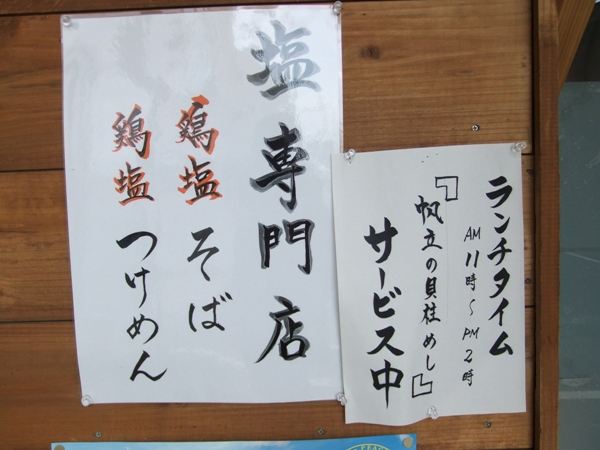 塩専門店
鶏塩そば
鶏塩つけめん
ランチタイム
AM11時～PM2時
『帆立の貝柱めし』
サービス中